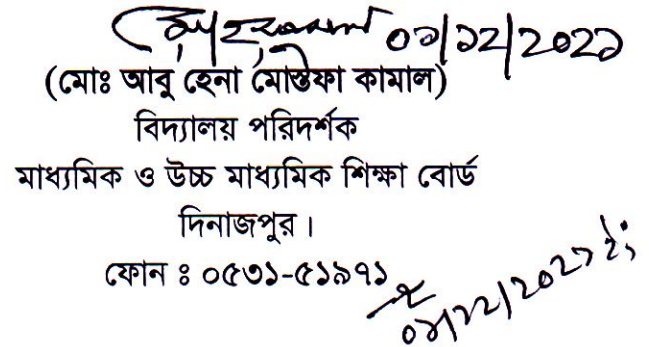 ০১/১২/২০২১
(মোঃ আবু হেনা মোস্তফা কামাল)
বিদ্যালয় পরিদর্শক
মাধ্যমিক ও উচ্চ মাধ্যমিক শিক্ষা বোর্ড
দিনাজপুর।
ফোন ঃ ০৫৩১-৫১৯৭১